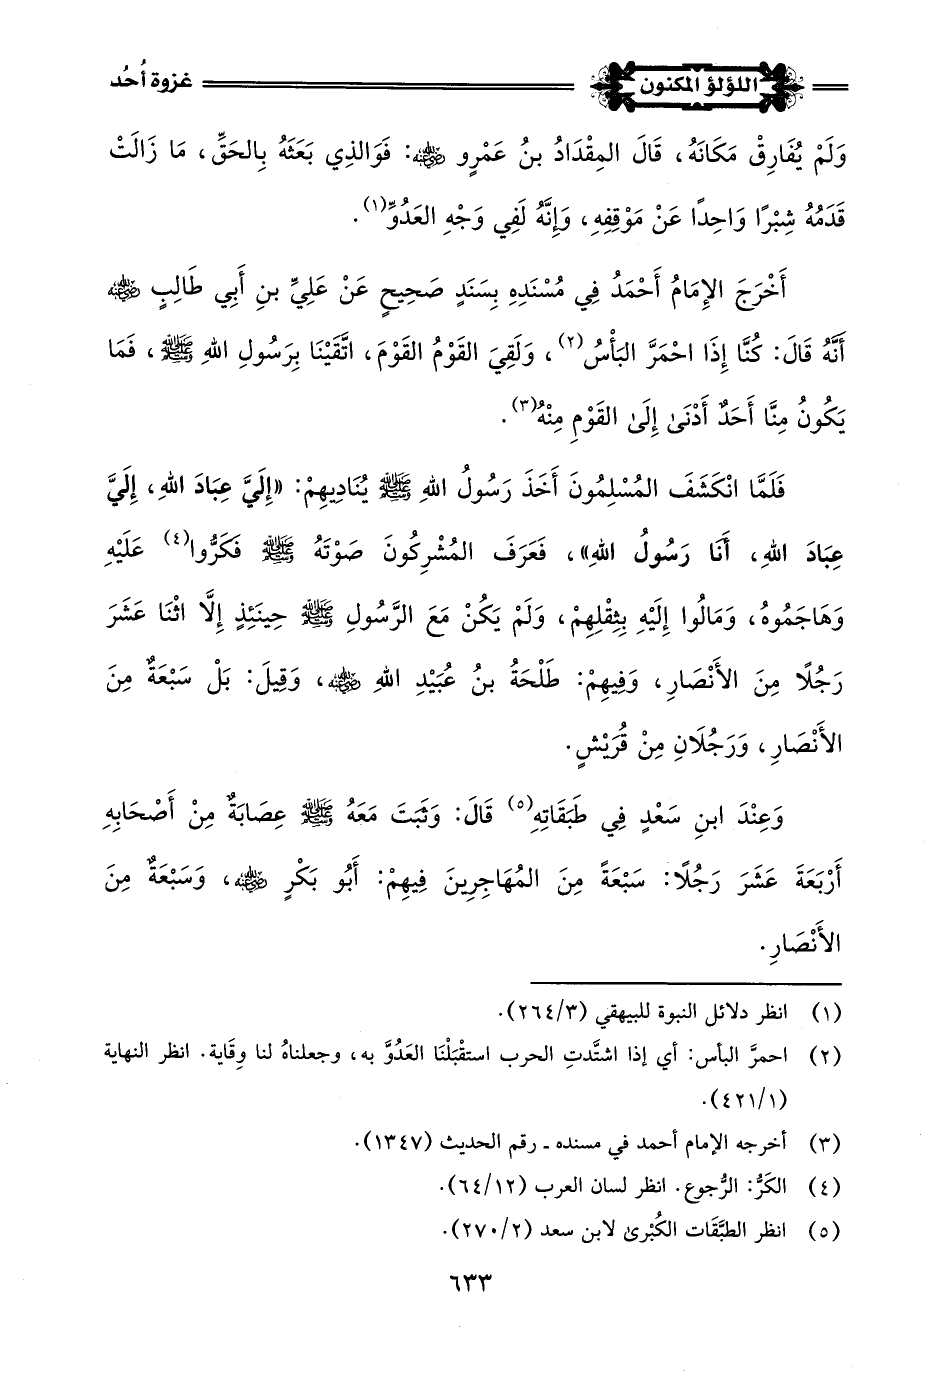 اللؤلؤ المكنون
غزوة أُحُد
وَلَمْ يُفَارِقْ مَكَانَهُ، قَالَ المِقْدَادُ بنُ عَمْرٍو رضي الله عنه: فَوَالذِي بَعَثَهُ بِالحَقِّ، مَا زَالَتْ
قَدَمُهُ شِبْرًا وَاحِدًا عَنْ مَوْقِفِهِ، وَإِنَّهُ لَفِي وَجْهِ العَدُوِّ(١).
أَخْرَجَ الإِمَامُ أَحْمَدُ فِي مُسْنَدِهِ بِسَنَدٍ صَحِيحٍ عَنْ عَلِيِّ بنِ أَبِي طَالِبٍ رضي الله عنه
أَنَّهُ قَالَ: كُنَّا إِذَا احْمَرَّ البَأْسُ(٢)، وَلَقِيَ القَوْمُ القَوْمَ، اتَّقَيْنَا بِرَسُولِ اللهِ ﷺ، فَمَا
يَكُونُ مِنَّا أَحَدٌ أَدْنَىٰ إِلَىٰ القَوْمِ مِنْهُ(٣).
فَلَمَّا انْكَشَفَ المُسْلِمُونَ أَخَذَ رَسُولُ اللهِ ﷺ يُنَادِيهِمْ: «إِلَيَّ عِبَادَ اللهِ، إِلَيَّ
عِبَادَ اللهِ، أَنَا رَسُولُ اللهِ»، فَعَرَفَ المُشْرِكُونَ صَوْتَهُ ﷺ فَكَرُّوا(٤) عَلَيْهِ
وَهَاجَمُوهُ، وَمَالُوا إِلَيْهِ بِثِقْلِهِمْ، وَلَمْ يَكُنْ مَعَ الرَّسُولِ ﷺ حِينَئِذٍ إِلَّا اثْنَا عَشَرَ
رَجُلًا مِنَ الأَنْصَارِ، وَفِيهِمْ: طَلْحَةُ بنُ عُبَيْدِ اللهِ رضي الله عنه، وَقِيلَ: بَلْ سَبْعَةٌ مِنَ
الأَنْصَارِ، وَرَجُلَانِ مِنْ قُرَيْشٍ.
وَعِنْدَ ابنِ سَعْدٍ فِي طَبَقَاتِهِ(٥) قَالَ: وَثَبَتَ مَعَهُ ﷺ عِصَابَةٌ مِنْ أَصْحَابِهِ
أَرْبَعَةَ عَشَرَ رَجُلًا: سَبْعَةً مِنَ المُهَاجِرِينَ فِيهِمْ: أَبُو بَكْرٍ رضي الله عنه، وَسَبْعَةٌ مِنَ
الأَنْصَارِ.
(١) انظر دلائل النبوة للبيهقي (٢٦٤/٣).
(٢) احمرَّ البأس: أي إذا اشتَّدتِ الحرب استقْبَلْنَا العَدُوَّ به، وجعلناهُ لنا وِقَاية. انظر النهاية
(٤٢١/١).
(٣) أخرجه الإمام أحمد في مسنده - رقم الحديث (١٣٤٧).
(٤) الكَرُّ: الرُّجوع. انظر لسان العرب (٦٤/١٢).
(٥) انظر الطبَّقَات الكُبْرىٰ لابن سعد (٢٧٠/٢).
٦٣٣